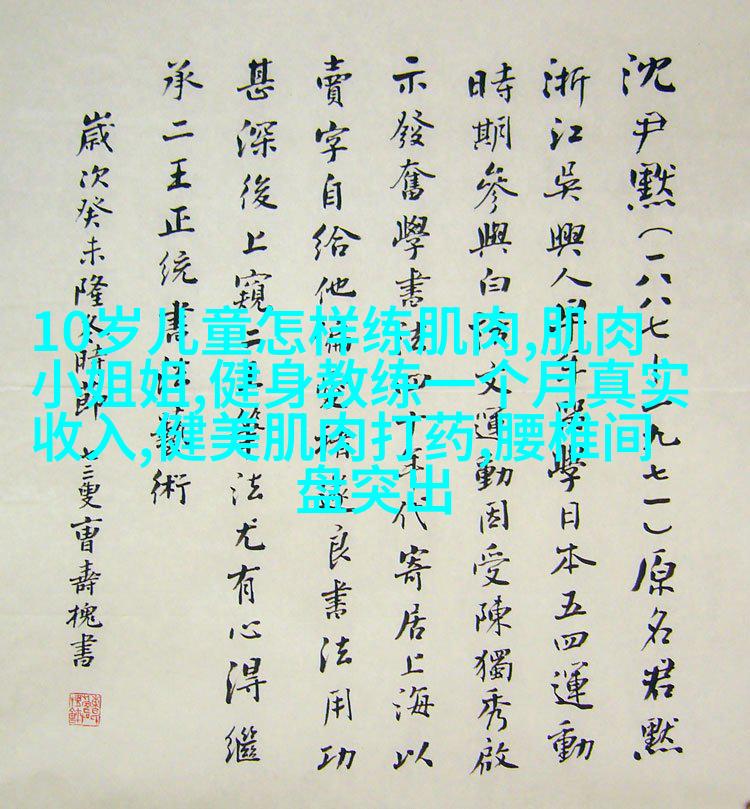 沈尹默(一八八七—一九七一)原名君默
浙江吳興人年學日本五四運動
時期參與白文運動因受陳獨秀啟
示發奮學書法四十年代寄居上海以
賣字自給他遂良書法用功
甚深後上窺二王筆法尤有心得繼
承二王正統書法藝術
歲次癸未隆冬時節曹壽槐書
10岁儿童怎样练肌肉,肌肉
小姐姐,健身教练一个月真实
收入,健美肌肉打药,腰椎间
盘突出